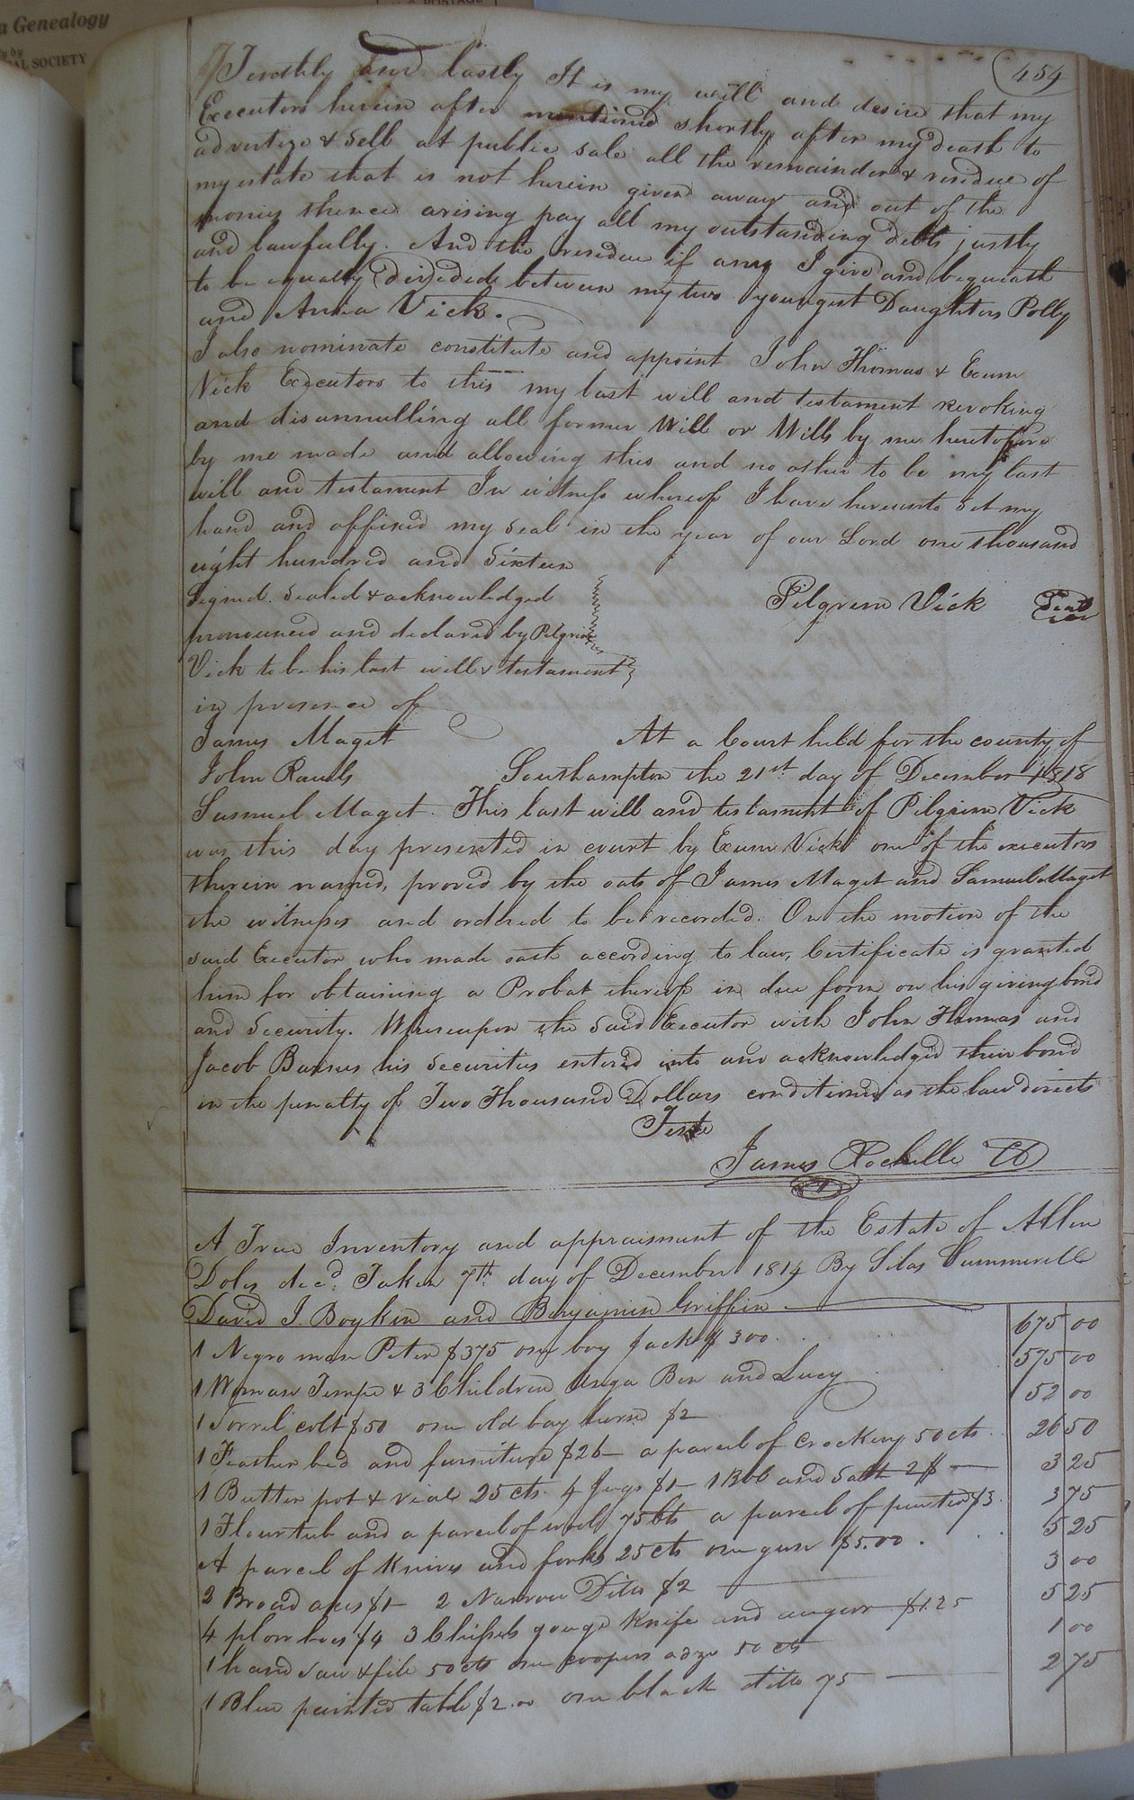 a Genealogy
SOCIETY
454
Tenthly and lastly It is my will and desire that my
Executors herein after mentioned shortly after my death to
advertize & Sell at public sale all the remainder & residue of
my estate that is not herein given away and out of the
monies thence arising pay all my outstanding debts justly
and lawfully. And the residue if any I give and bequeath
to be equally divided between my two youngest Daughters Polly
and Anna Vick.
I also nominate constitute and appoint John Thomas & Exum
Vick Executors to this my last will and testament revoking
and disannulling all former Will or Wills by me heretofore
by me made and allowing this and no other to be my last
will and testament In witness whereof I have hereunto Set my
hand and affixed my Seal in the year of our Lord one thousand
eight hundred and Sixteen
Signed. Sealed & acknowledged
Pilgrim Vick Seal
pronounced and declared by Pilgrim
Vick to be his last will & testament
in presence of
James Maget
At a Court held for the county of
John Rawls
Southampton the 21st day of December 1818
Samuel Maget. This last will and testament of Pilgrim Vick
was this day presented in court by Exum Vick one of the executors
therein named, proved by the oats of James Maget and Samuel Maget
the witnesses and ordered to be recorded. On the motion of the
said Executor who made oath according to law, Certificate is granted
him for obtaining a Probat thereof in due form on his giving bond
and Security. Whereupon the Said Executor with John Thomas and
Jacob Barnes his Securities entered into and acknowledged their bond
in the penalty of Two Thousand Dollars conditioned as the law directs
Teste
James Rochelle
A True Inventory and appraisment of the Estate of Allen
Doles decd. Taken 7th day of December 1814 By Silas Summerell
David J. Boykin and Benjamin Griffin
1 Negro man Peter $375 one boy Jack $300 675 00
1 Woman Tempe & 3 Children Ben and Lucy 575 00
1 Sorrel colt $50 one old bay horse $2 52 00
1 Feather bed and furniture $26 a parcel of crockery 50cts 26 50
1 Butter pot & vial 25 cts. 4 Jugs $1 and Salt 2$ 3 25
1 Flour tub and a parcel of 75cts a parcel of pewter $3 3 75
A parcel of Knives and forks 25cts one gun $5.00 5 25
2 Broad axes $1 2 Narrow Ditto $2 3 00
4 plow hoes $4 3 Chissels gouge Knife and augur $1.25 5 25
1 hand Saw & file 50cts one coopers adze 50 cts 1 00
1 Blue painted table $2.00 one black ditto 75 2 75